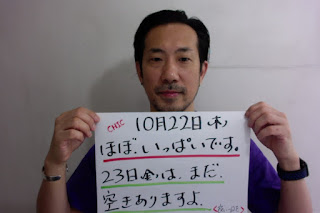 CNIC 10月22日(木)
ほぼ、いっぱいです。
23日(金)は、まだ、
空きありますよ。